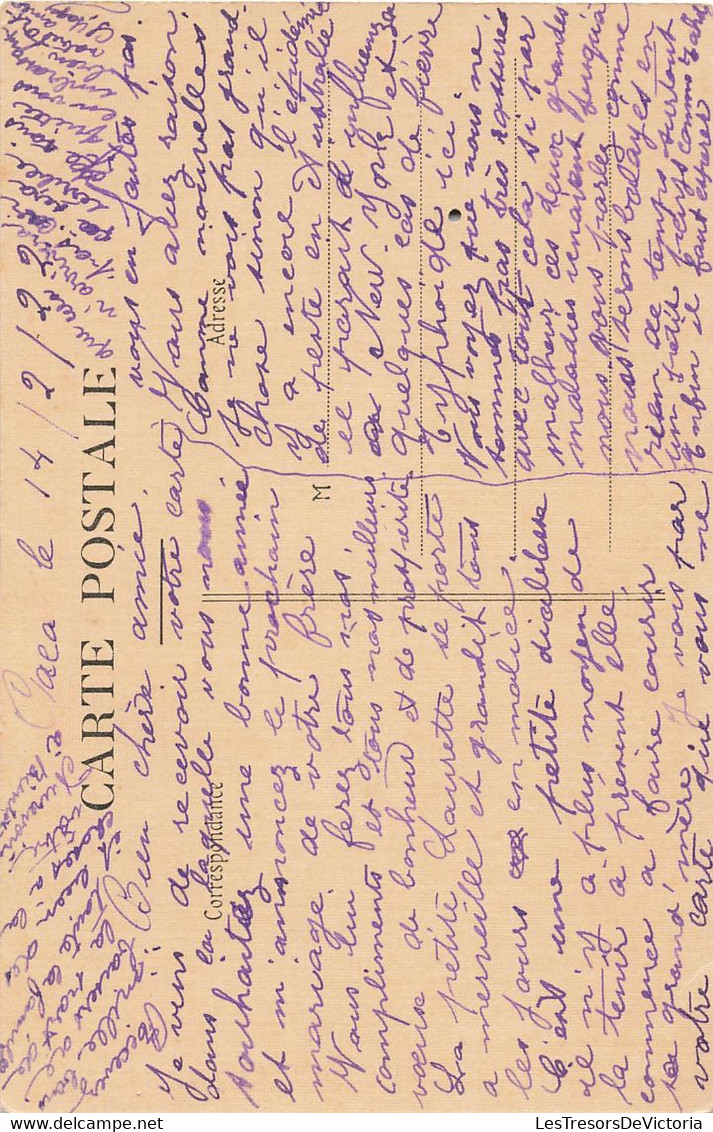 Gaea le 14/2/22
CARTE POSTALE
Correspondance
Adresse
M
Bien chère amie,
Je viens de recevoir votre carte
dans la laquelle vous nous
souhaitez une bonne année
et m'annoncez le prochain
mariage de votre frère
Vous lui ferez tous nos
compliments et tous nos meilleurs
vœux de bonheur et de prospérité
La petite Laurette se porte
à merveille et grandit tous
les jours en malice.
C'est une petite diablesse
il n'y a plus moyen de
la tenir à présent elle
commence à faire courir
sa grand'mère. Je vois par
votre carte que vous ne
vous en faites pas.
Vous avez raison.
Comme nouvelles
je ne vois pas grand
chose sinon qu'il
y a encore l'épidémie
de peste en Australie
il paraît d'influenza
à New York et
quelques cas de fièvre
typhoïde ici.
Vous voyez que nous ne
sommes pas très rassurés
avec tout cela si par
malheur ces deux grandes
maladies venaient jusqu'à
nous vous parlez comme
nous serons balayés en
rien de temps surtout
un petit pays comme
Enfin il faut espérer
que ça
n'arrivera
pas.
Recevez
mille bons
baisers de
la part de
toute la famille
et bien des
choses à la
vôtre
LesTresorsDeVictoria.com